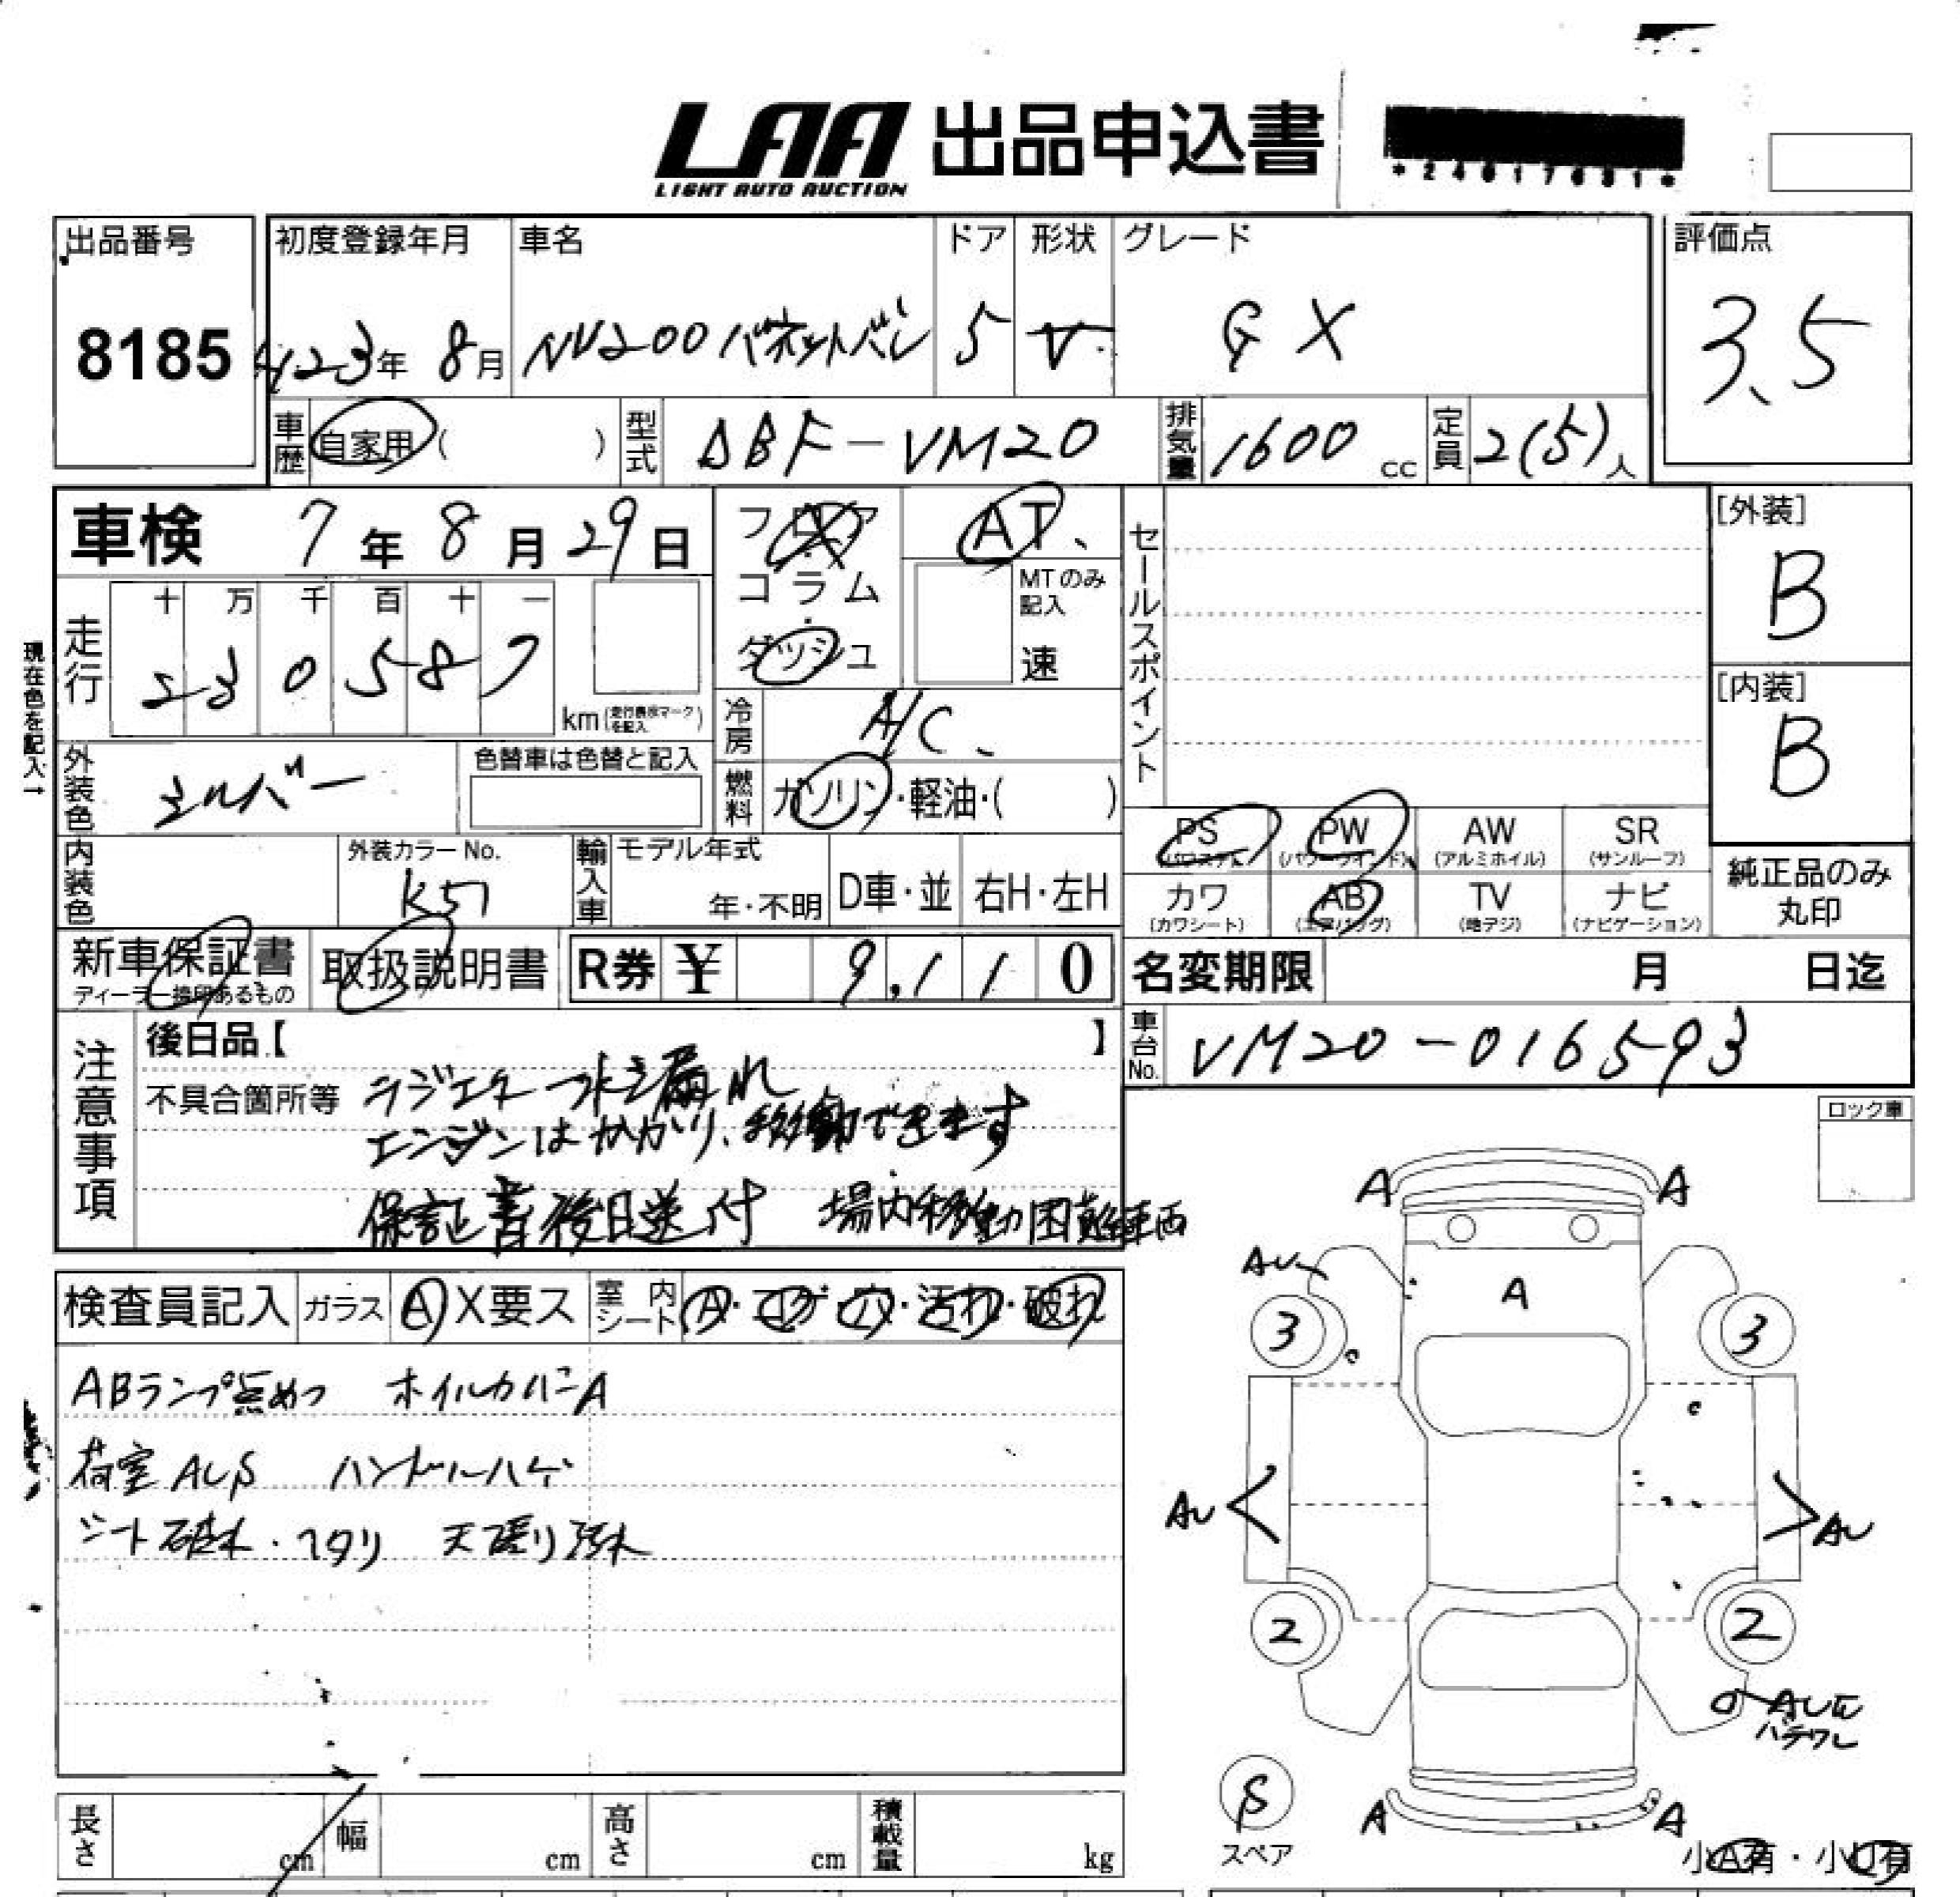 LAA 出品申込書
LIGHT AUTO AUCTION
出品番号 初度登録年月 車名 ドア 形状 グレード 評価点
8185 H.23年 8月 NV200バネットバン 5 V GX 3.5
車歴 自家用( ) 型式 DBF-VM20 排気量 1600 cc 定員 2(5)人
車検 7年8月29日 フロア コラム ダッシュ AT MTのみ記入 速 セールスポイント [外装] B
現在色を記入→
走行 十 万 千 百 十 一
2 3 0 5 8 7 km(走行表示マークを記入)
[内装] B
冷房 A/C
外装色 シルバー 色替車は色替と記入 燃料 ガソリン・軽油・( )
PS (パワステ) PW (パワーウインド) AW (アルミホイル) SR (サンルーフ)
内装色 外装カラーNo. K51 輸入車 モデル年式 年・不明 D車・並 右H・左H
カワ (カワシート) AB (エアバッグ) TV (地デジ) ナビ (ナビゲーション) 純正品のみ丸印
新車保証書 ディーラー捺印あるもの 取扱説明書 R券 ¥ 9,110 名変期限 月 日迄
注意事項 後日品【 】 車台No. VM20-016593
不具合箇所等 ラジエター水漏れ
エンジンはかかり、移動できます
保証書後日送付 場内移動困難車両
ロック車
検査員記入 ガラス A X要ス 室内シート A・コゲ・穴・汚れ・破れ
ABランプ点めつ ホイルカバーA
荷室AUS ハンドルハゲ
シート破れ・ヘタリ 天張り汚れ
A A
AU A
3 3
AU AU
2 2
バチワレ
S
スペア
A A
小A有・小U有
長さ cm 幅 cm 高さ cm 積載量 kg